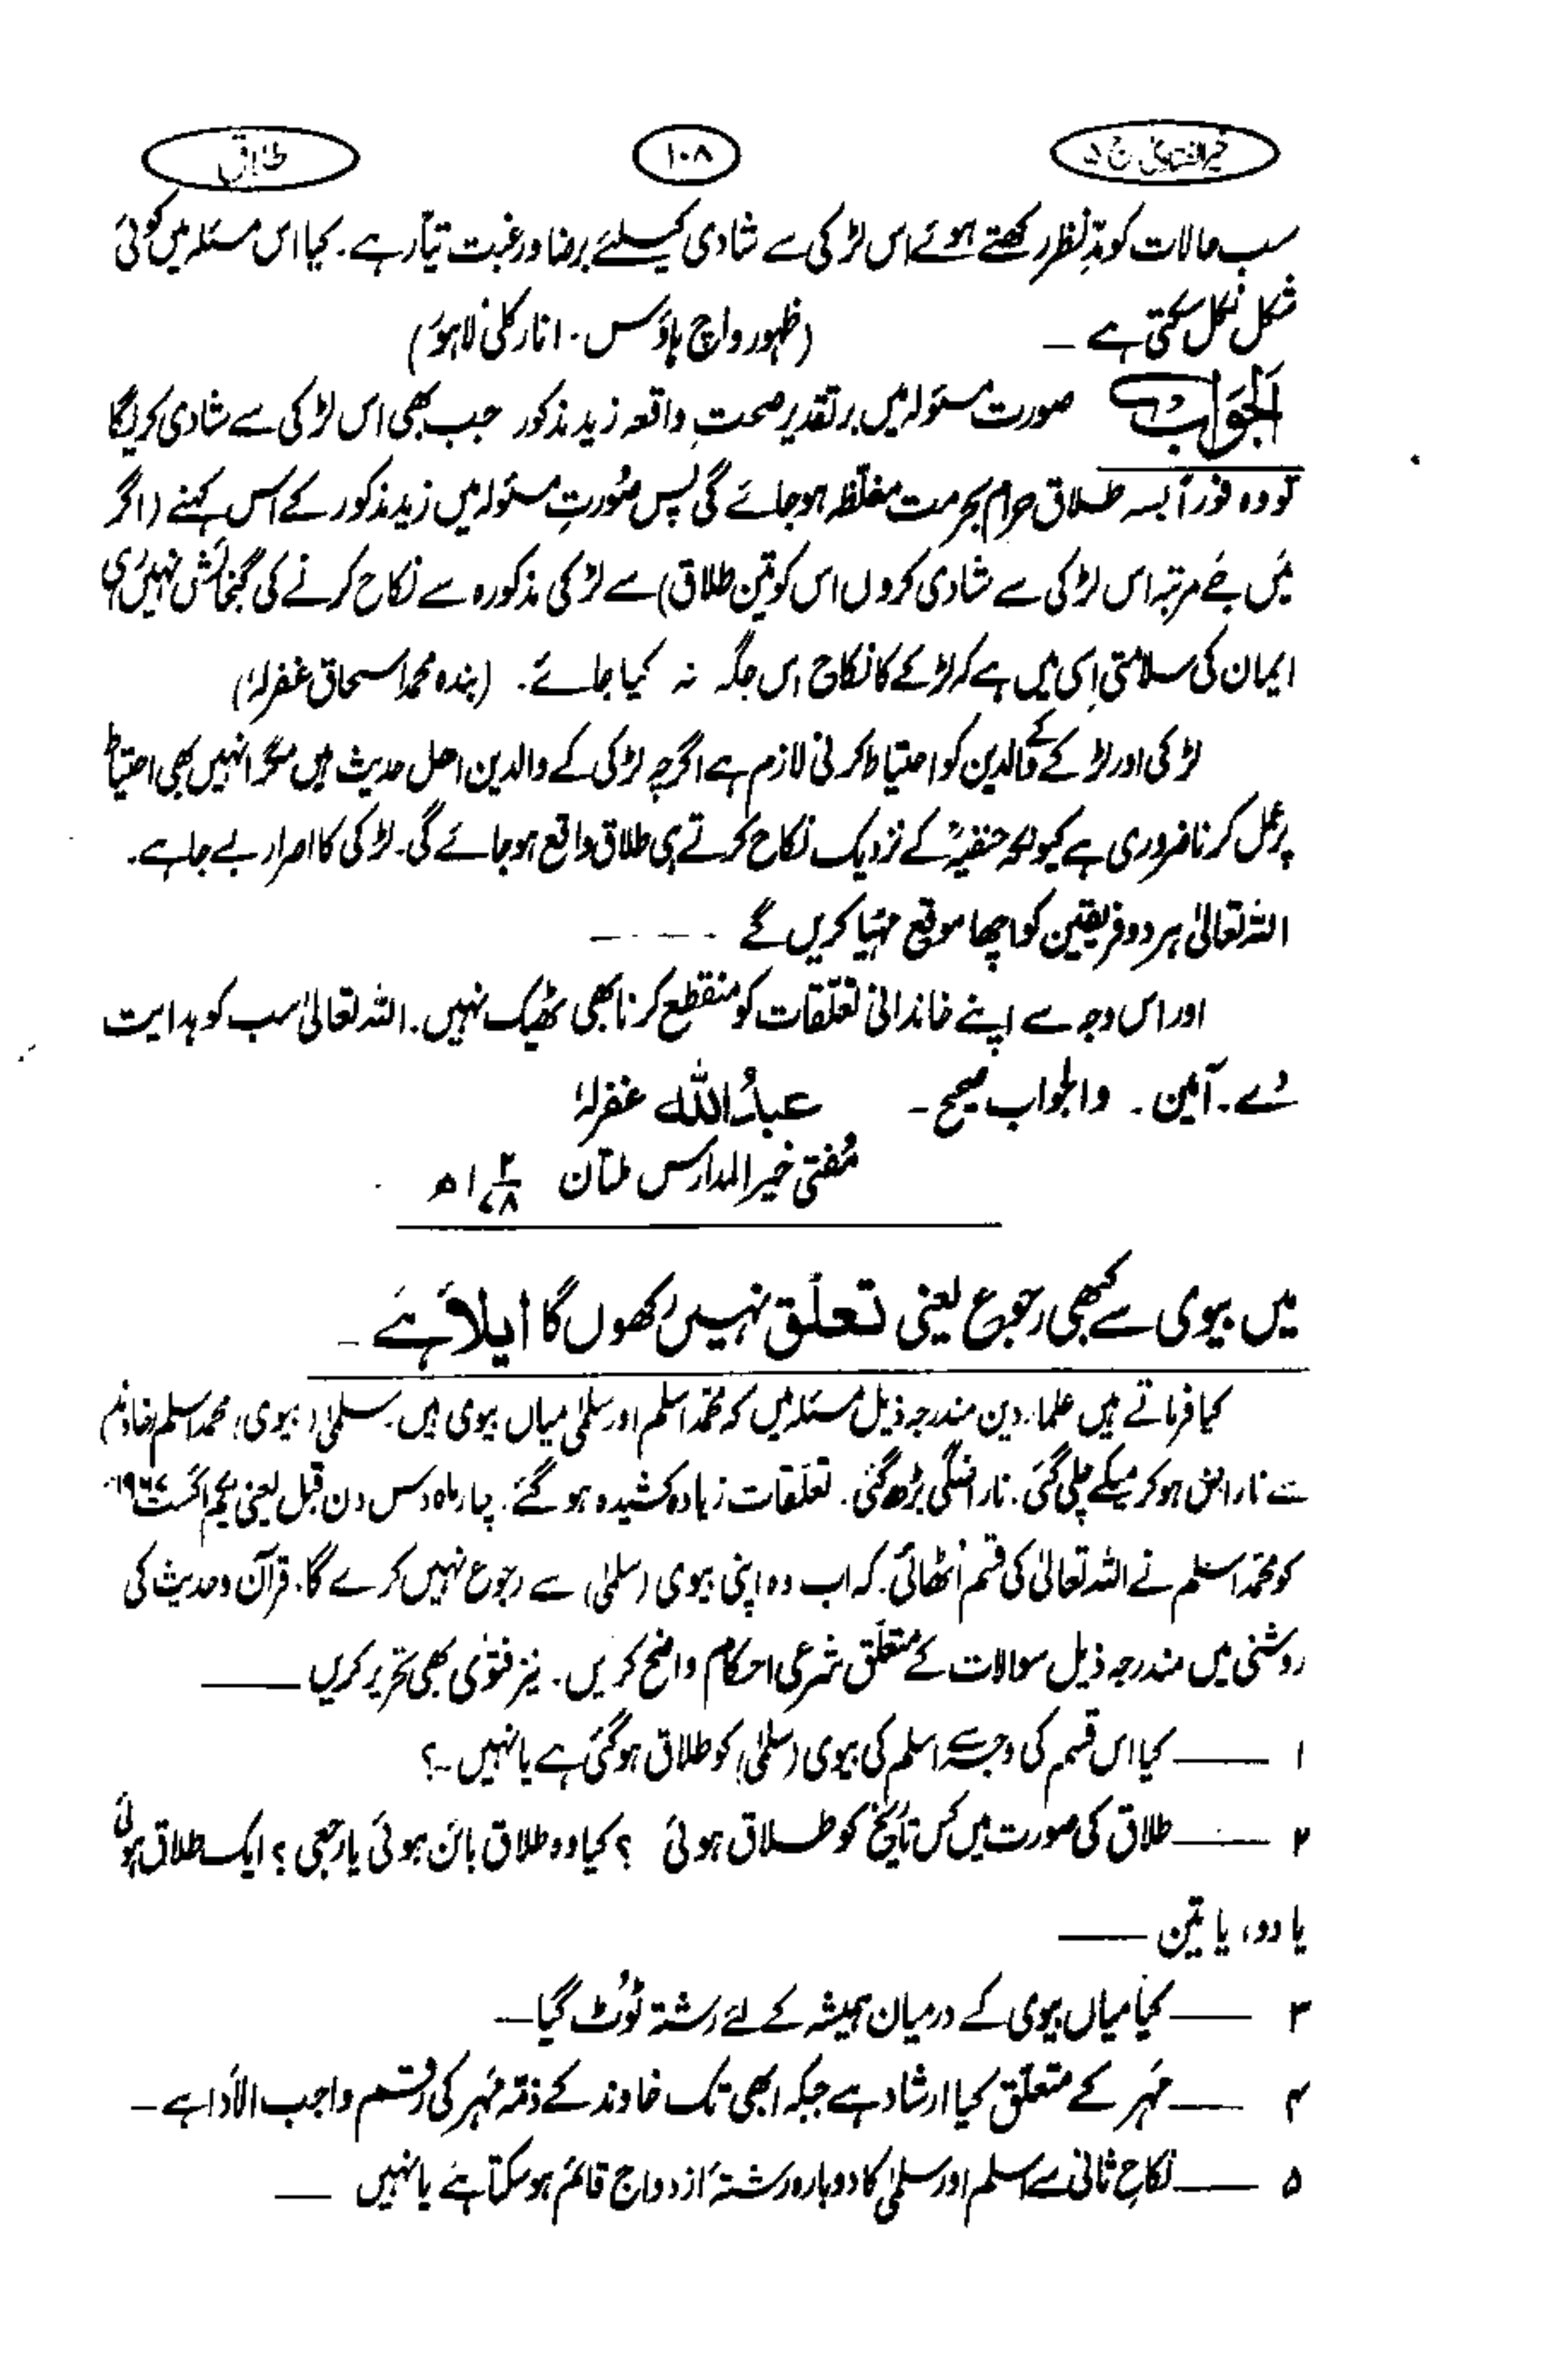 خیر الفتاویٰ ج ۵
۱۰۸
طلاق
سب حالات کو مدِّنظر رکھتے ہوئے اس لڑکی سے شادی کیلئے برضا ورغبت تیار ہے۔ کیا اس مسئلہ میں کوئی
شکل نکل سکتی ہے ـ (ظہور واچ ہاؤس۔ انارکلی لاہور)
الجواب صورت مسئولہ میں برتقدیر صحتِ واقعہ زید مذکور جب بھی اس لڑکی سے شادی کریگا
تو وہ فوراً بسہ طلاق حرام بحرمت مغلظہ ہو جائے گی پس صُورتِ مسئولہ میں زید مذکور کے اس کہنے (اگر
میں جے مرتبہ اس لڑکی سے شادی کروں اس کو تین طلاق) سے لڑکی مذکورہ سے نکاح کرنے کی گنجائش نہیں رہی
ایمان کی سلامتی اِسی میں ہے کہ لڑکے کا نکاح اس جگہ نہ کیا جائے۔ (بندہ محمد اسحاق غفرلہٗ)
لڑکی اور لڑکے کے والدین کو احتیاط کرنی لازم ہے اگرچہ لڑکی کے والدین اہل حدیث ہیں مگر انہیں بھی احتیاط
پر عمل کرنا ضروری ہے کیونکہ حنفیہؒ کے نزدیک نکاح کرتے ہی طلاق واقع ہو جائے گی۔ لڑکی کا اصرار بے جا ہے۔
اللہ تعالیٰ ہر دو فریقین کو اچھا موقع مہیّا کریں گے ـ ـ ـ ـ
اور اس وجہ سے اپنے خاندانی تعلّقات کو منقطع کرنا بھی ٹھیک نہیں۔ اللہ تعالیٰ سب کو ہدایت
دے۔ آمین۔ والجواب صحیح ـ عبدُاللہ غفرلہٗ
مُفتی خیر المدارس ملتان ۲/۸ ھ
میں بیوی سے کبھی رجوع یعنی تعلّق نہیں رکھوں گا ایلأ ہے ـ
کیا فرماتے ہیں علماء دین مندرجہ ذیل مسئلہ میں کہ محمّد اسلم اور سلمیٰ میاں بیوی ہیں۔ سلمیٰ (بیوی) محمد اسلم (خاوند)
سے ناراض ہو کر میکے چلی گئی۔ ناراضگی بڑھ گئی۔ تعلّقات زیادہ کشیدہ ہو گئے۔ چار ماہ دس دن قبل یعنی یکم اگست ۱۹۶۷ء
کو محمّد اسلم نے اللہ تعالیٰ کی قسم اُٹھائی۔ کہ اب وہ اپنی بیوی (سلمیٰ) سے رجوع نہیں کرے گا۔ قرآن وحدیث کی
روشنی میں مندرجہ ذیل سوالات کے متعلّق شرعی احکام واضح کریں۔ نیز فتویٰ بھی تحریر کریں ـــــ
۱ ـــــ کیا اس قسم کی وجہ سے اسلم کی بیوی (سلمیٰ) کو طلاق ہو گئی ہے یا نہیں ـ؟
۲ ـــــ طلاق کی صورت میں کس تاریخ کو طلاق ہوئی ؟ کیا وہ طلاق بائن ہوئی یا رجعی ؟ ایک طلاق ہوئی
یا دو، یا تین ـــــ
۳ ـــــ کیا میاں بیوی کے درمیان ہمیشہ کے لئے رشتہ ٹوٹ گیا ـ
۴ ـــــ مہر کے متعلّق کیا ارشاد ہے جبکہ ابھی تک خاوند کے ذمّہ مہر کی رقم واجب الأدا ہے ـ
۵ ـــــ نکاحِ ثانی سے اسلم اور سلمیٰ کا دوبارہ رشتۂ ازدواج قائم ہو سکتا ہے یا نہیں ـــــ